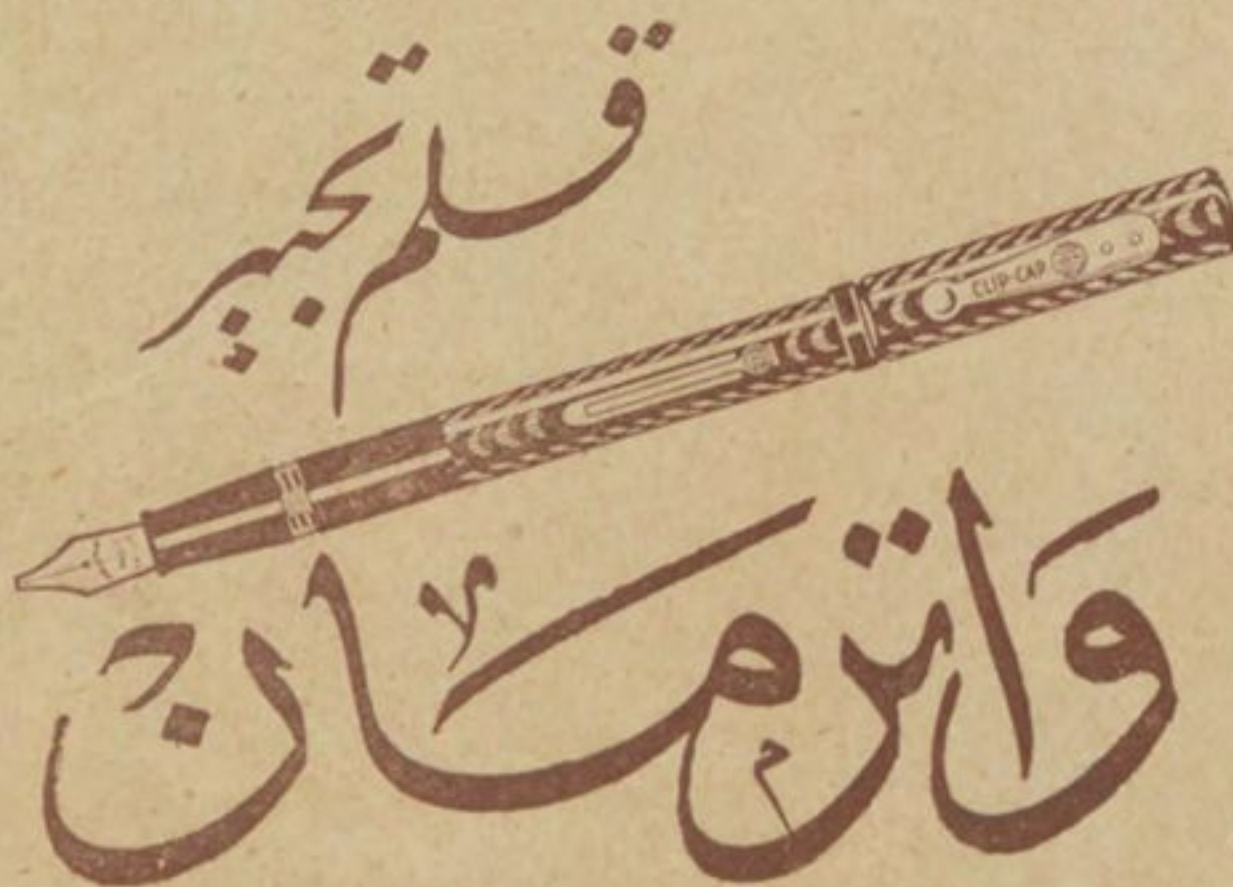 قلم تحبير
CLIP-CAP
وَاترمان